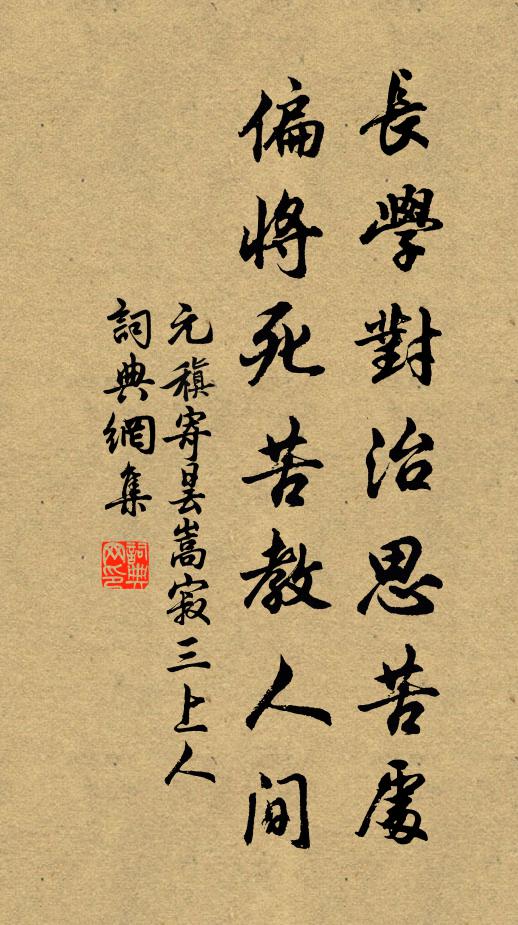 長學對治思苦處
偏將死苦教人間
元稹寄曇嵩寂三上人
詞典網集
詞典網印